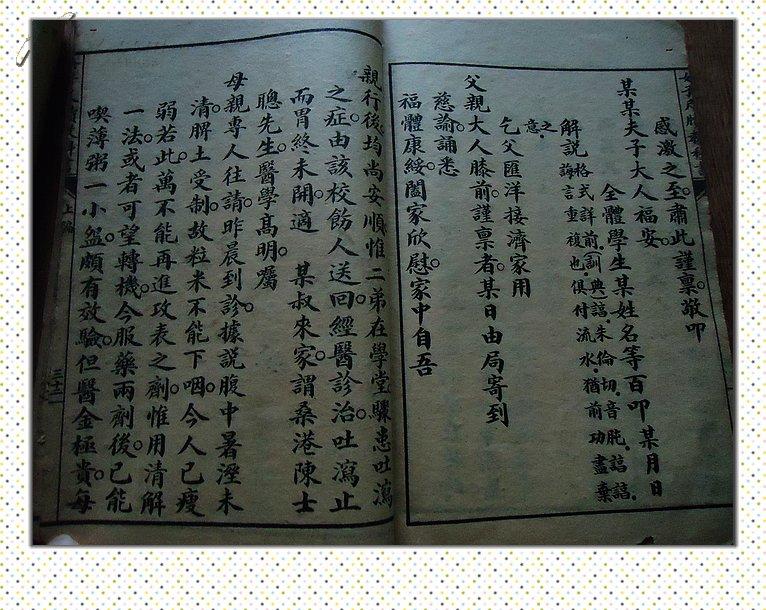 感激之至。肅此謹稟。敬叩
某某夫子大人福安。
全體學生某姓名等百叩 某月日
解說 格式詳前。訓典諠。朱倫切。音肫。諠諠。
誨言重複也。俱付流水。猶前功盡棄
之意。
乞父匯洋接濟家用
父親大人膝前。謹稟者。某日由局寄到
慈諭。誦悉
福體康綏。闔家欣慰。家中自吾
親行後。均尚安順。惟二弟在學堂。驟患吐瀉
之症。由該校飭人送回。經醫診治。吐瀉止
而胃終未開。適 某叔來家。謂桑港陳士
聰先生。醫學高明。囑
母親專人往請。昨晨到診。據說腹中暑溼未
清。脾土受制。故粒米不能下咽。今人已瘦
弱若此。萬不能再進攻表之劑。惟用清解
一法。或者可望轉機。今服藥兩劑後。已能
喫薄粥一小盌。頗有效驗。但醫金極貴。每
上
三十二